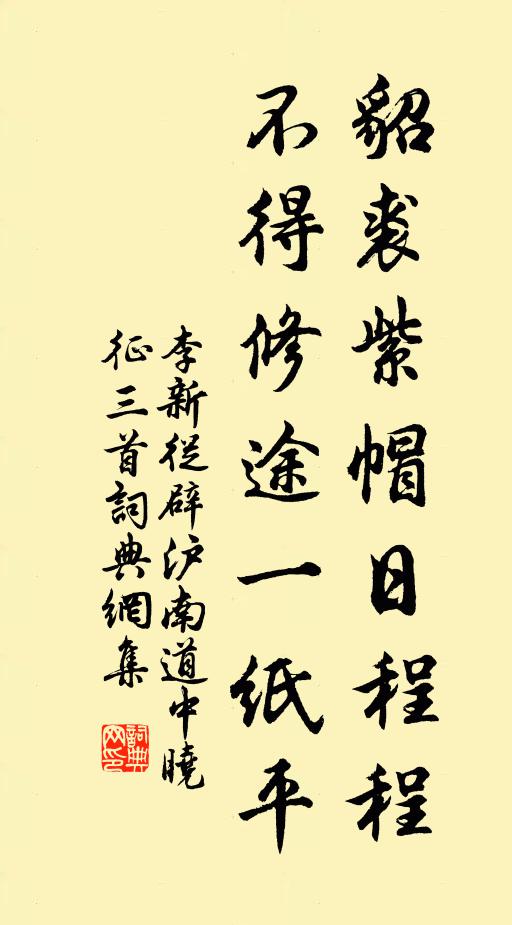 貂裘紫帽日程程
不得修途一纸平
李新從辟沪南道中曉
征三首詞典網集
詞典
网印